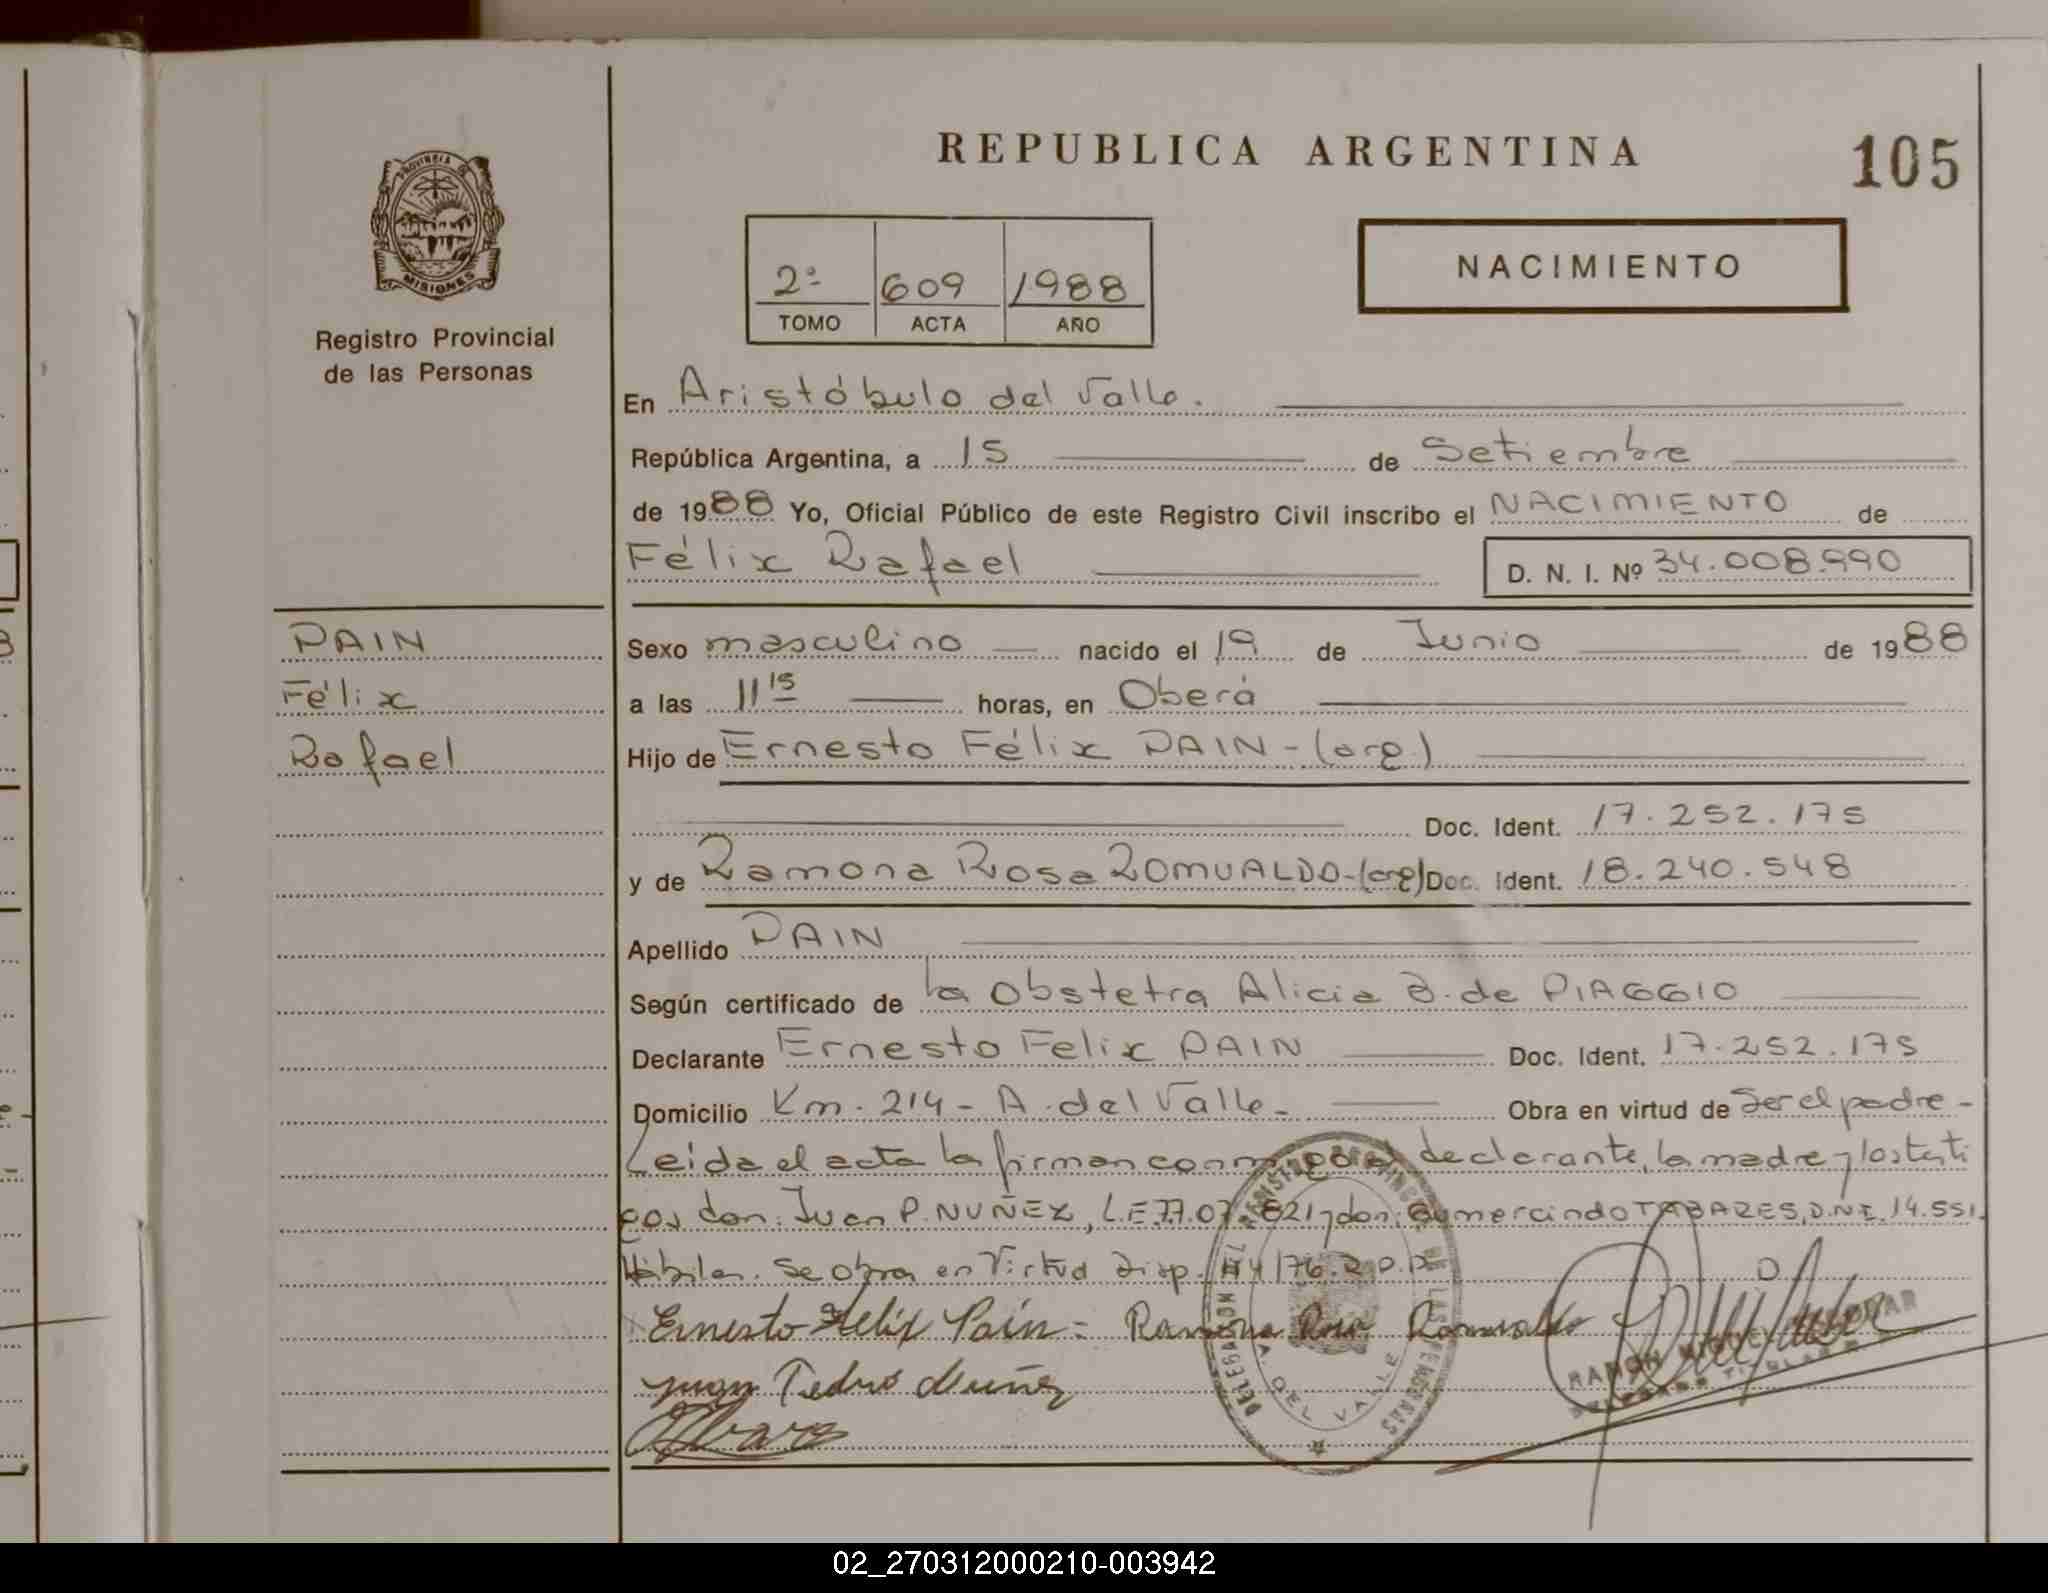 REPUBLICA ARGENTINA
105
PROVINCIA DE
MISIONES
Registro Provincial
de las Personas
2º 609 1988
TOMO ACTA AÑO
NACIMIENTO
En Aristóbulo del Valle.
República Argentina, a 15 de Setiembre
de 1988 Yo, Oficial Público de este Registro Civil inscribo el NACIMIENTO de
Félix Rafael D. N. I. Nº 34.008.990
PAIN
Félix
Rafael
Sexo masculino nacido el 19 de Junio de 1988
a las 11 15 horas, en Oberá
Hijo de Ernesto Félix PAIN-(arg.)
Doc. Ident. 17.252.175
y de Ramona Rosa ROMUALDO-(arg) Doc. Ident. 18.240.548
Apellido PAIN
Según certificado de la Obstetra Alicia B. de PIAGGIO
Declarante Ernesto Felix PAIN Doc. Ident. 17.252.175
Domicilio Km. 214- A. del Valle- Obra en virtud de Ser el padre-
Leída el acta la firman conmigo el declarante, la madre y los testi
gos don: Juan P. NUÑEZ, L.E. 77.07 821 y don: Gumercindo TABARES, D.N.I. 14.551.
Hábiles. Se obra en Virtud Disp. 44/76. R.P.P.
Ernesto Felix Pain= Ramona Rosa Romualdo
Juan Pedro Nuñez
DELEGACION DEL REGISTRO PROVINCIAL DE LAS PERSONAS
A. DEL VALLE
RAMON MIGUEL
DELEGADO TITULAR
02_270312000210-003942